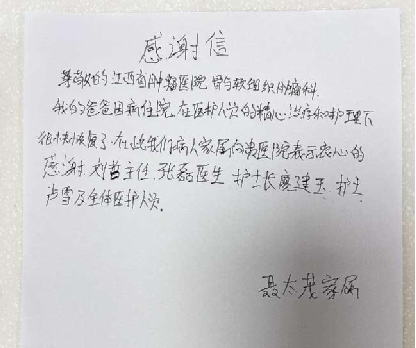 感谢信
尊敬的江西省肿瘤医院 骨与软组织肿瘤科
我的爸爸因病住院,在医护人员的精心治疗和护理下
很快康复了,在此我们病人家属向贵医院表示衷心的
感谢 刘 主任,张磊医生 护士长廖建玉,护士
卢雪及全体医护人员。
聂太茂家属